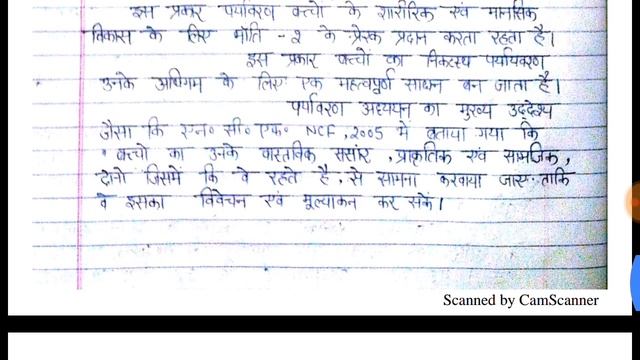 इस प्रकार पर्यावरण बच्चो के शारीरिक एवं मानसिक
विकास के लिए भाँति - २ के प्रेरक प्रदान करता रहता है।
इस प्रकार बच्चों का निकटस्थ पर्यावरण
उनके अधिगम के लिए एक महत्वपूर्ण साधन बन जाता है।
पर्यावरण अध्ययन का मुख्य उद्देश्य
जैसा कि एन० सी० एफ० NCF, 2005 मे बताया गया कि
बच्चो का उनके वास्तविक संसार, प्राकृतिक एवं सामाजिक,
दोनो जिसमें कि वे रहते है, से सामना करवाया जाए ताकि
वे इसका विवेचन एवं मूल्याकन कर सकें।
Scanned by CamScanner